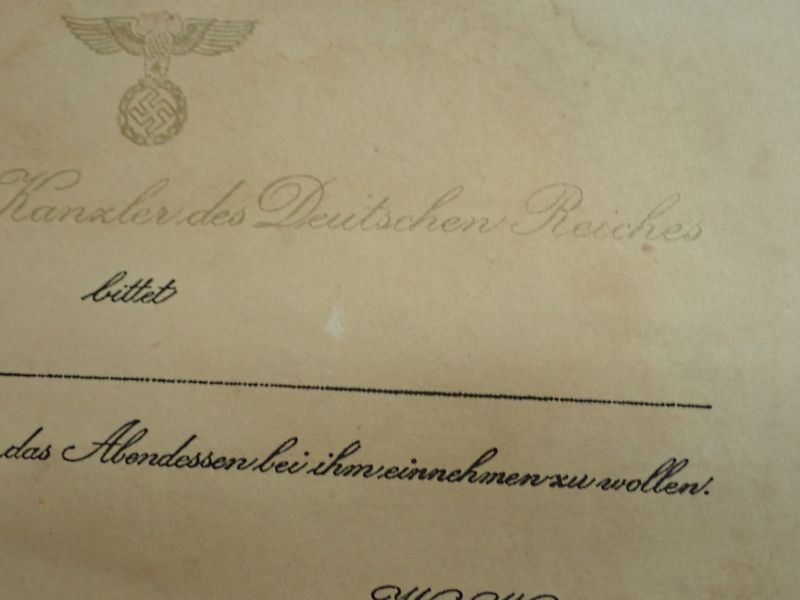 Kanzler des Deutschen Reiches
bittet
das Abendessen bei ihm einnehmen zu wollen.